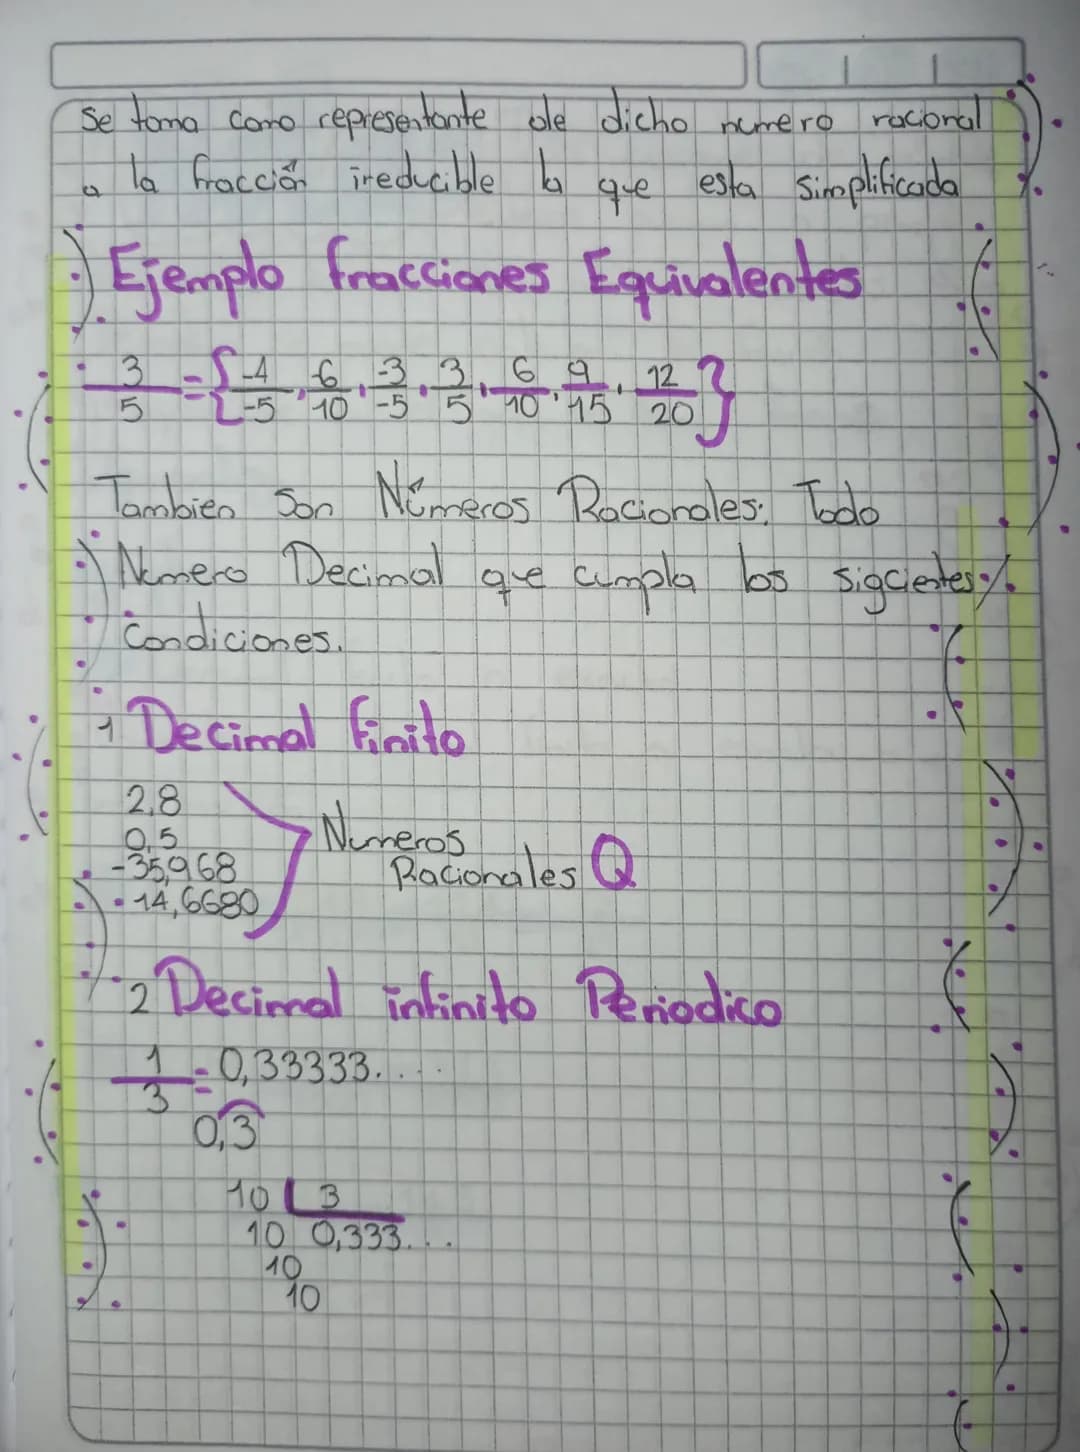 Se toma como representante de dicho numero racional
a la fracción ireducible la que esta simplificada
Ejemplo fracciones Equivalentes
3/5 = { -4/-5, -6/10, -3/-5, 3/5, 6/10, 9/15, 12/20 }
Tambien son Números Racionales: Todo
Numero Decimal que cumpla los siguientes
Condiciones.
1 Decimal finito
2,8
0,5
-35,968
-14,6680
Numeros
Racionales Q
2 Decimal infinito Periodico
1/3 = 0,33333....
0,3̑
10 | 3
10 0,333...
10
10